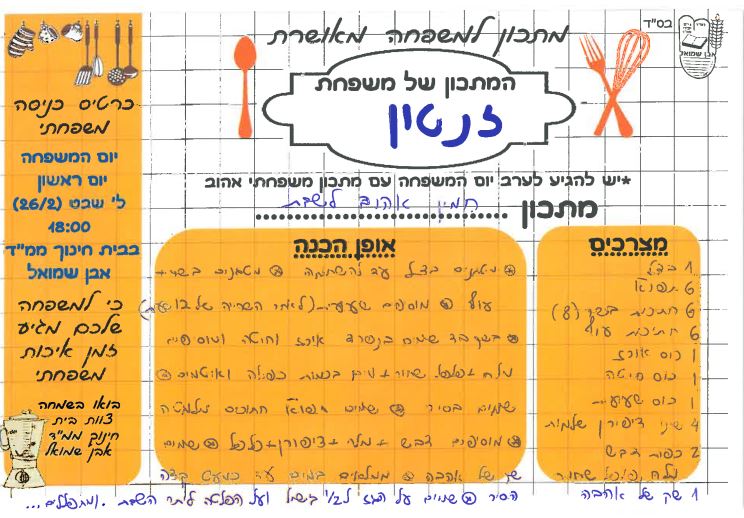 בס"ד
אבן שמואל
מתכון למשפחה מאושרת
המתכון של משפחת
זנטון
*יש להגיע לערב יום המשפחה עם מתכון משפחתי אהוב
מתכון חמין אהוב לשבת
כרטיס כניסה
משפחתי
יום המשפחה
יום ראשון
ל' שבט (26/2)
18:00
בבית חינוך ממ"ד
אבן שמואל
כי למשפחה
שלכם מגיע
זמן איכות
משפחתי
בואו בשמחה
צוות בית
חינוך ממ"ד
אבן שמואל
מצרכים
1 בצל
6 תפוא
6 חתיכות בשר (8)
6 חתיכות עוף
1 כוס אורז
1 כוס חיטה
1 כוס שעועית
4 שיני ציפורן שלמות
2 כפות דבש
מלח פלפל שחור
1 שק של אהבה
אופן הכנה
מטגנים בצל עד להשחמה מטגנים בשר+
עוף מוספים שעועית (לאחר השריה של 12 שעות)
בשק בד שמים בנפרד אורז וחיטה ומוסיפים
מלח+פלפל שחור+מים בכמות כפולה ואוטמים
שמים בסיר שמים תפוא חתוכים למטה
מוספים דבש+מלח+ציפורן+פלפל שמים
שק של אהבה ממלאים במים עד כמעט קצה
הסיר שמים על הגז ל 1/2 בישול ועל הפלטה לליל השבת. ומתפללים...